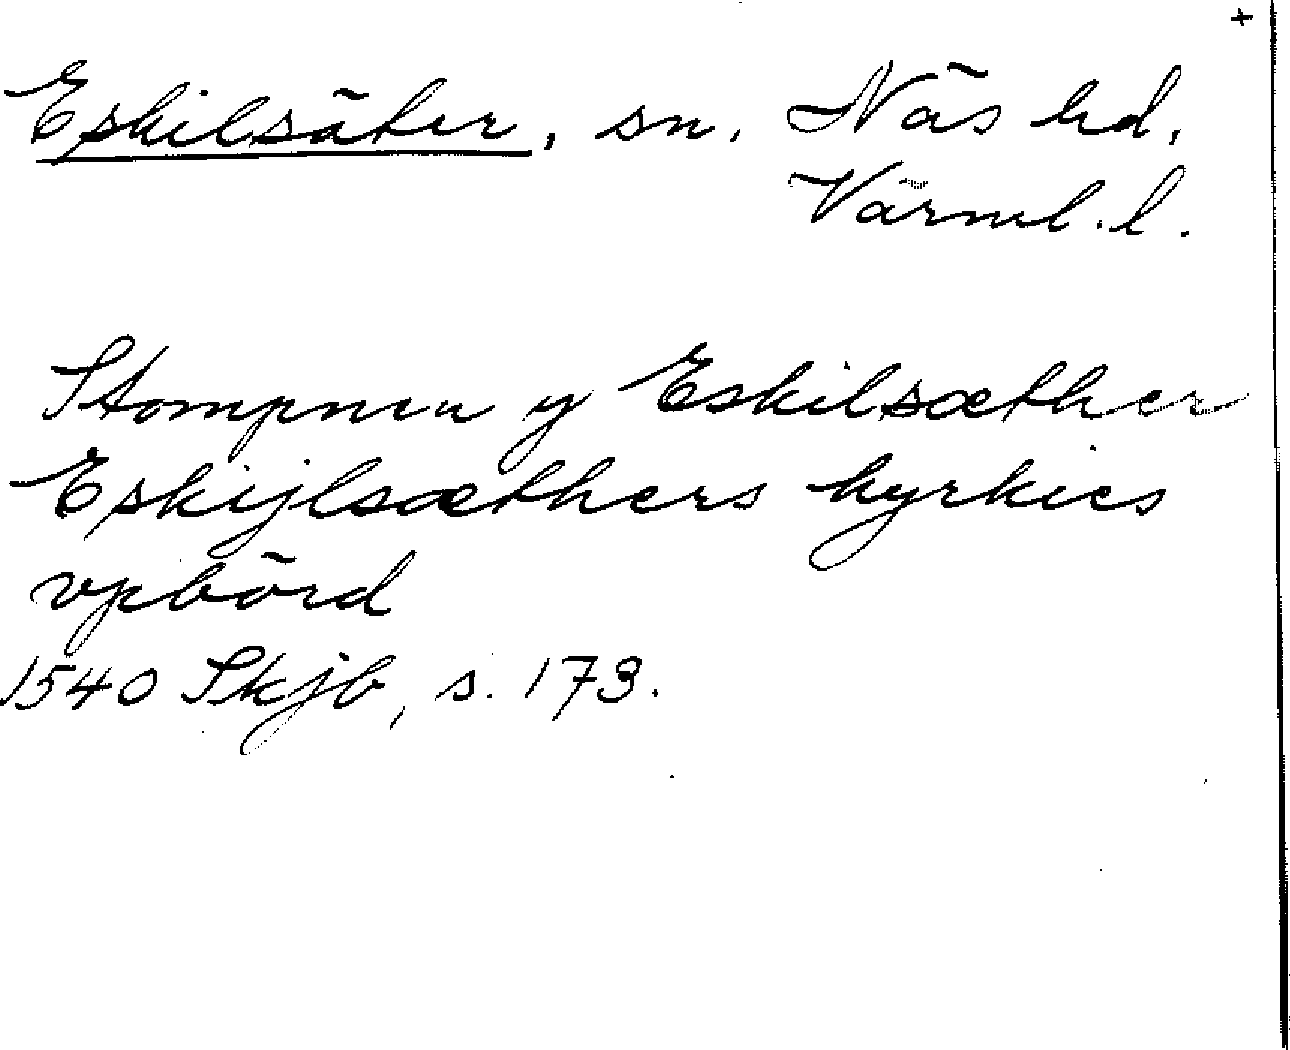 +
Eskilsäter, sn, Näs hd,
Värml. l.
Stompnen y Eskilsæther
Eskijlsæthers kyrkies
vpbörd
1540 Skjb, s. 173.